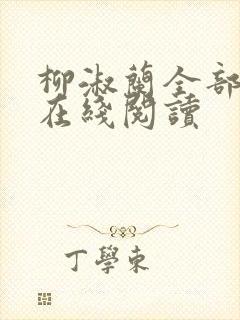 柳淑蘭全部
在綫閱讀
丁學東